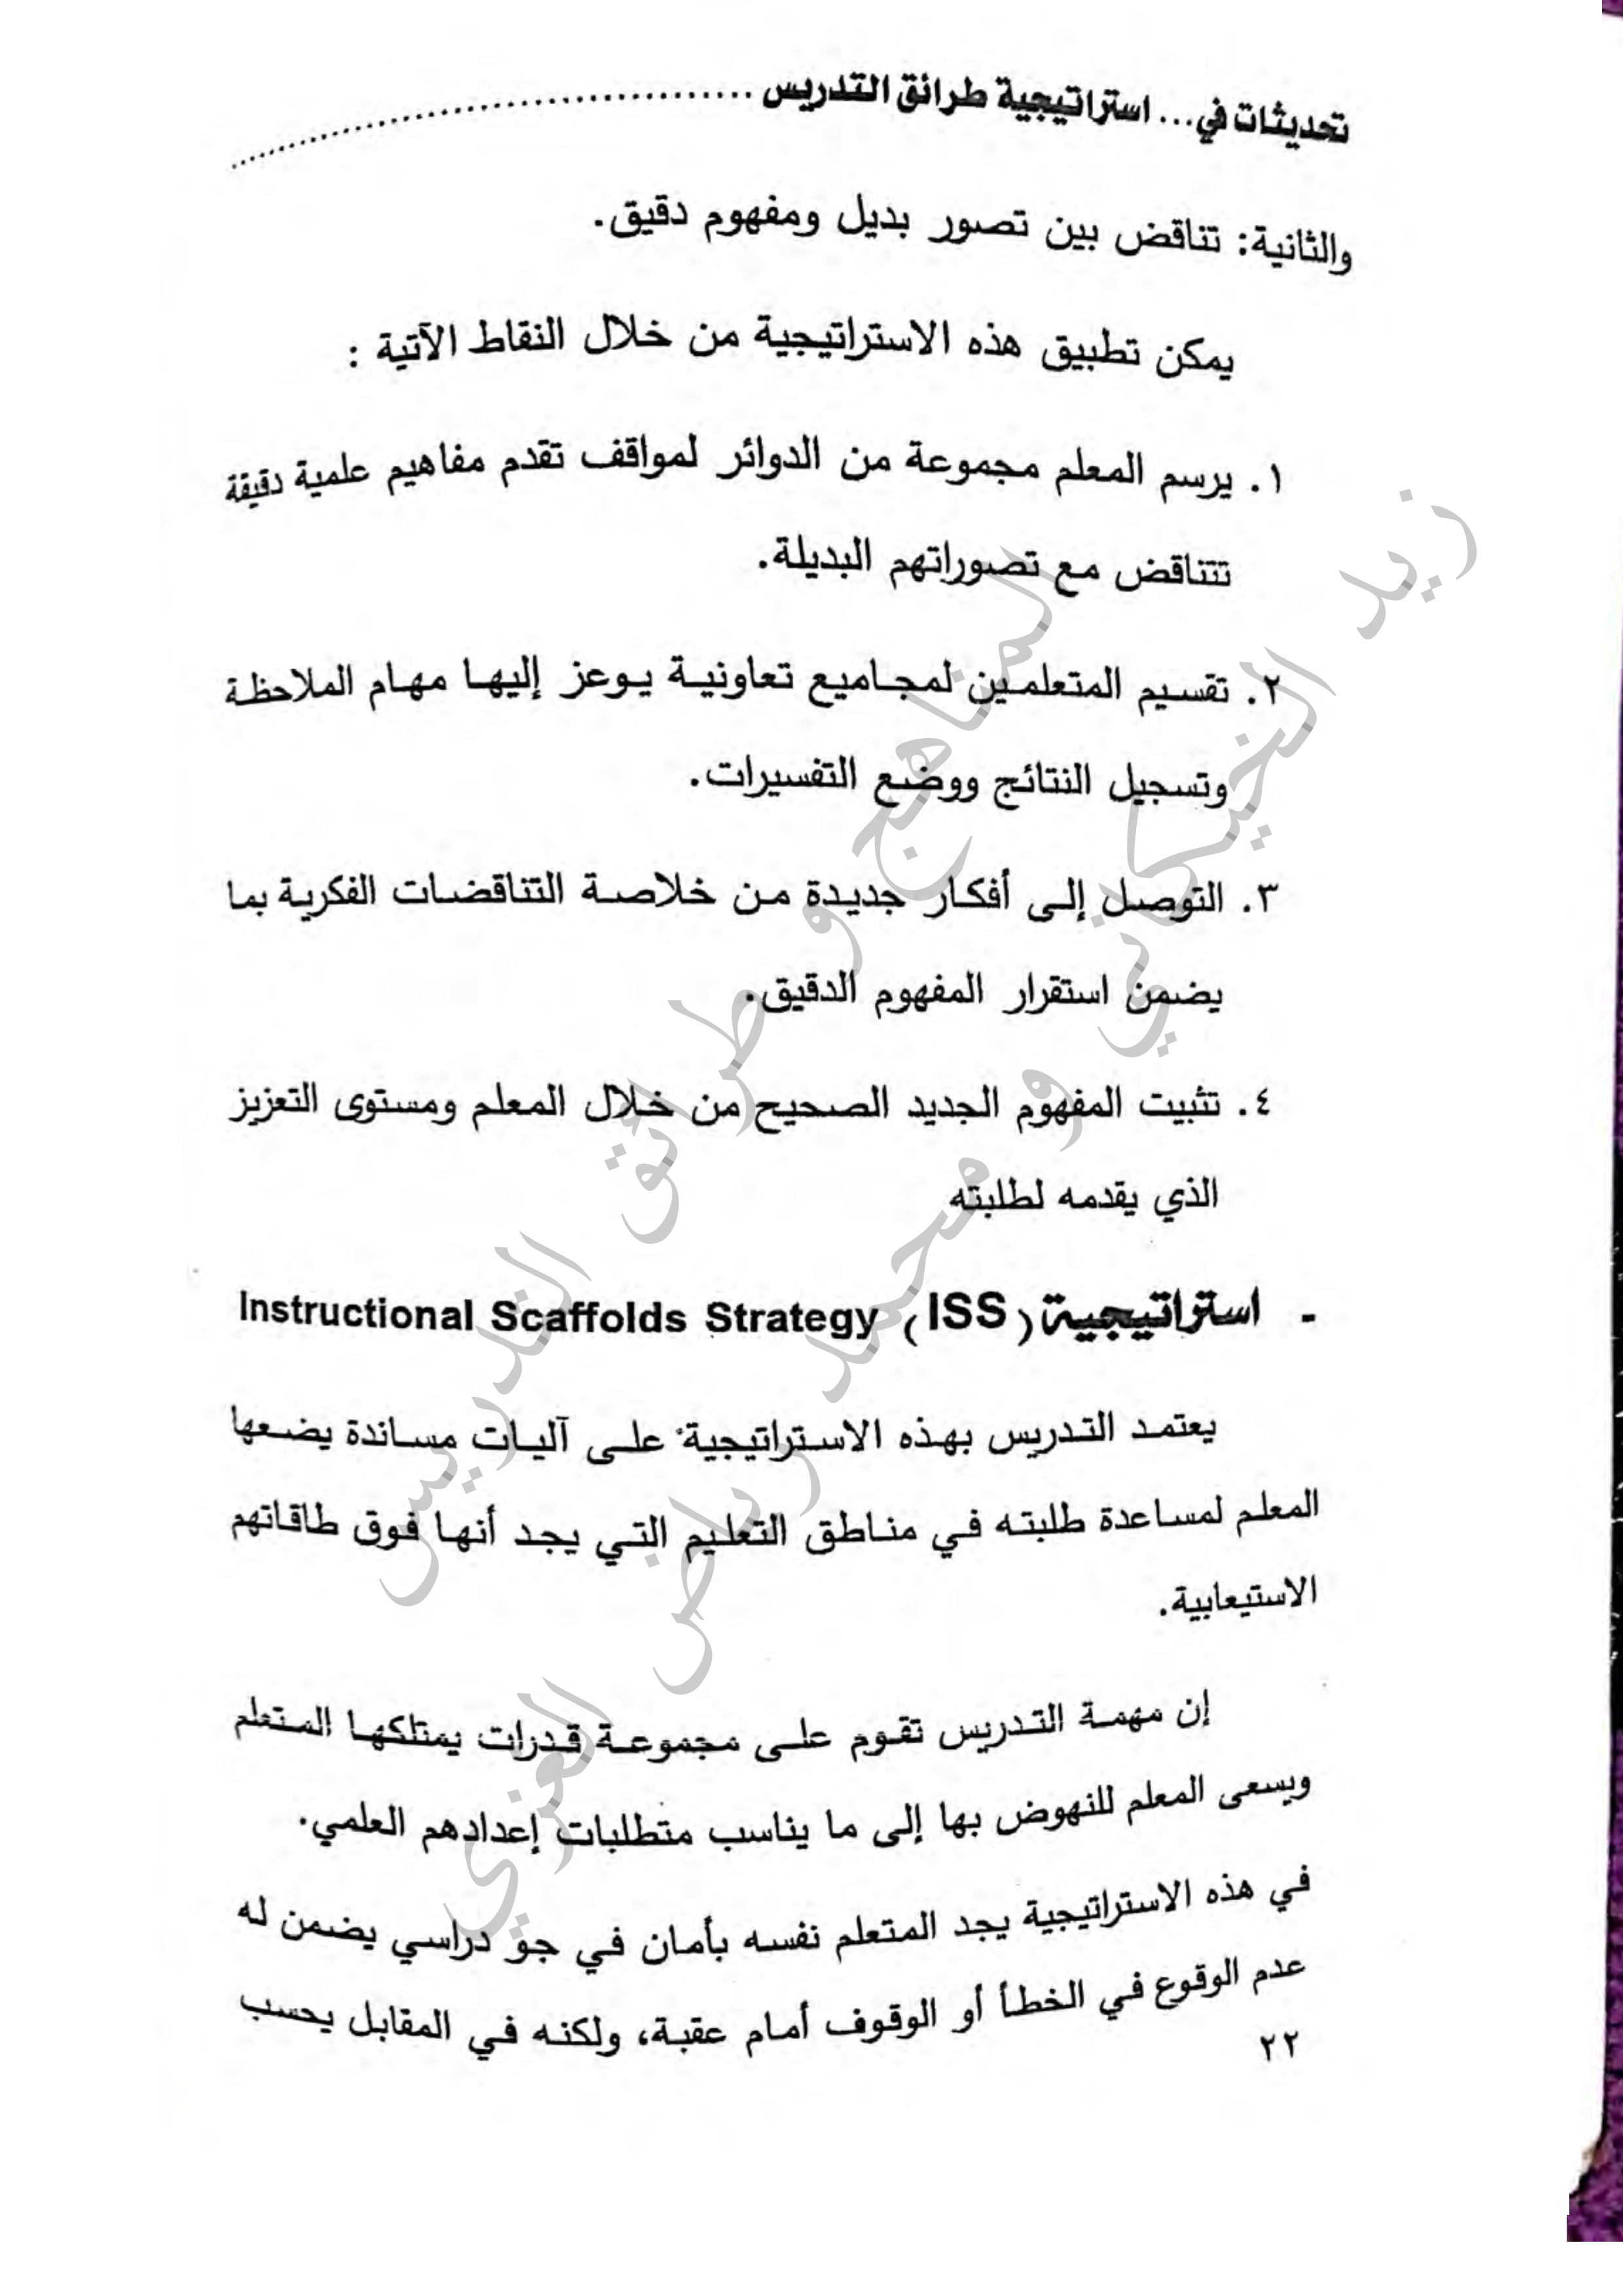 تحديثات في... استراتيجية طرائق التدريس ........................................
والثانية: تناقض بين تصور بديل ومفهوم دقيق.
يمكن تطبيق هذه الاستراتيجية من خلال النقاط الآتية :
١. يرسم المعلم مجموعة من الدوائر لمواقف تقدم مفاهيم علمية دقيقة
تتناقض مع تصوراتهم البديلة.
٢. تقسيم المتعلمين لمجاميع تعاونية يوعز إليها مهام الملاحظة
وتسجيل النتائج ووضع التفسيرات.
٣. التوصل إلى أفكار جديدة من خلاصة التناقضات الفكرية بما
يضمن استقرار المفهوم الدقيق.
٤. تثبيت المفهوم الجديد الصحيح من خلال المعلم ومستوى التعزيز
الذي يقدمه لطلبته
- استراتيجية (ISS) Instructional Scaffolds Strategy
يعتمد التدريس بهذه الاستراتيجية على آليات مساندة يضعها
المعلم لمساعدة طلبته في مناطق التعليم التي يجد أنها فوق طاقاتهم
الاستيعابية.
إن مهمة التدريس تقوم على مجموعة قدرات يمتلكها المتعلم
ويسعى المعلم للنهوض بها إلى ما يناسب متطلبات إعدادهم العلمي.
في هذه الاستراتيجية يجد المتعلم نفسه بأمان في جو دراسي يضمن له
عدم الوقوع في الخطأ أو الوقوف أمام عقبة، ولكنه في المقابل يحسب
٢٢
المناهج و طرائق التدريس
زيد الخيكاني و محمد رياض العزي